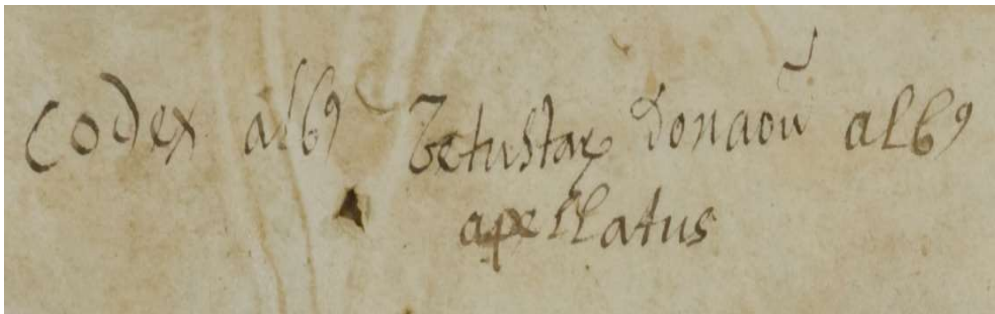 Codex albꝰ Vetustaꝝ Donaoũ albꝰ
apellatus